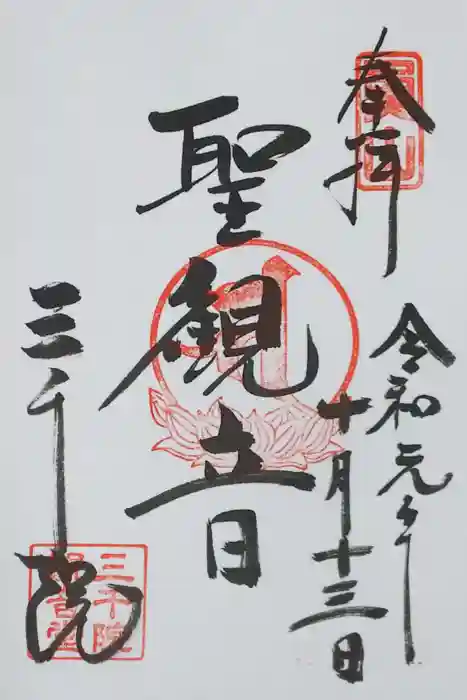 奉拝
令和元年
十月十三日
聖観音
三千院
三千院